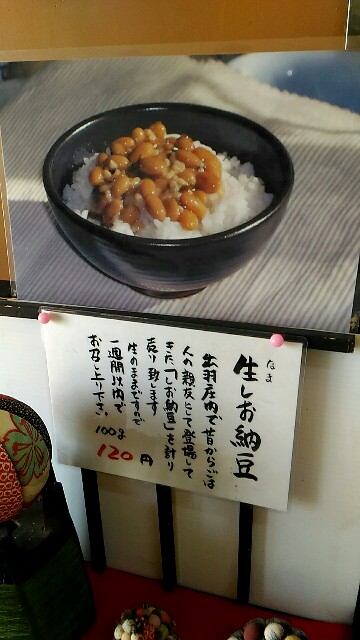 なま
生しお納豆
出羽庄内で昔からごは
人の親友として登場して
きた「しお納豆」を計り
売り致します
生のままですので
一週間以内で
お召し上り下さい。
100g
120円